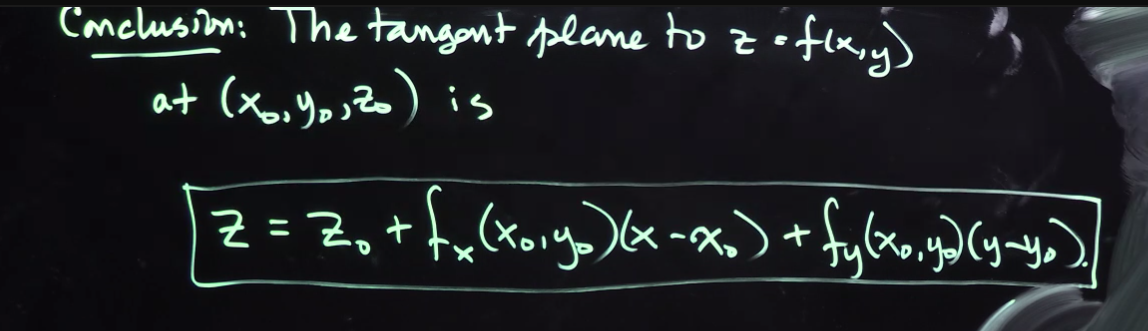 Conclusion: The tangent plane to z = f(x,y)
at (x₀, y₀, z₀) is
z = z₀ + fₓ(x₀,y₀)(x-x₀) + f_y(x₀,y₀)(y-y₀).